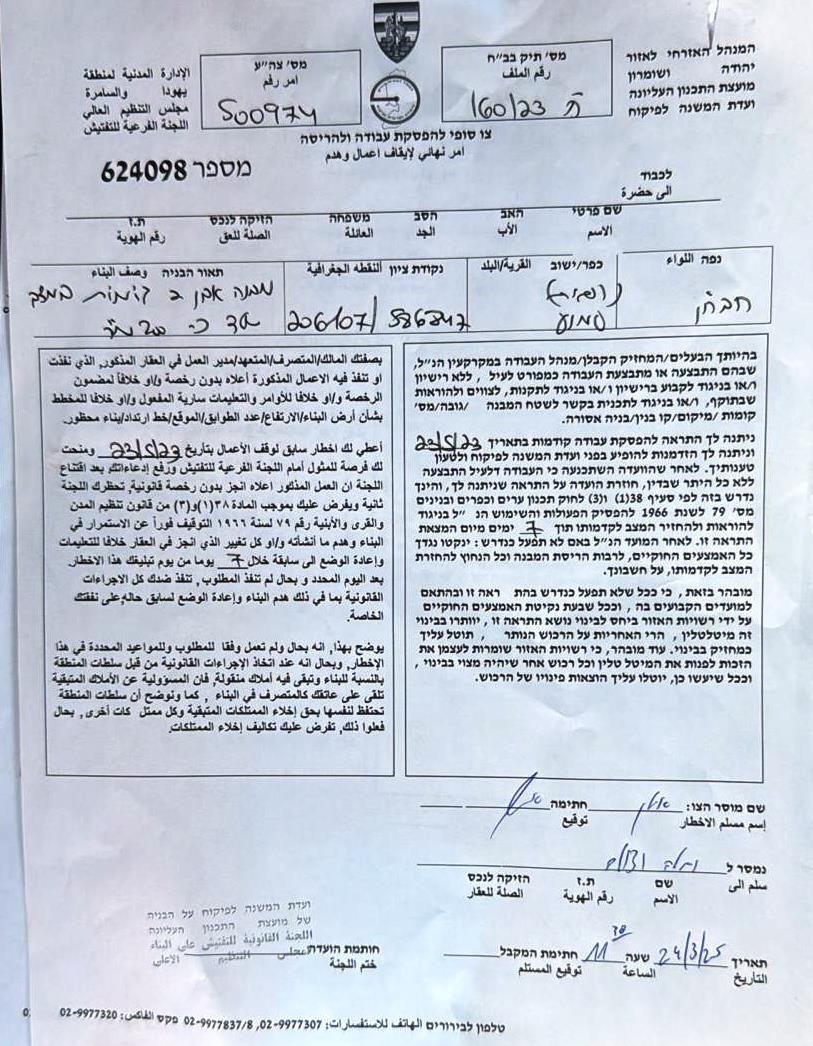 המנהל האזרחי לאזור
יהודה ושומרון
מועצת התכנון העליונה
ועדת המשנה לפיקוח
מס' תיק בב"ח
رقم الملف
ח 160/23
מס' צה"ע
امر رقم
500974
الإدارة المدنية لمنطقة
يهودا والسامرة
مجلس التنظيم العالي
اللجنة الفرعية للتفتيش
צו סופי להפסקת עבודה ולהריסה
امر نهائي لإيقاف اعمال وهدم
מספר 624098
לכבוד
الى حضرة
שם פרטי האב הסב משפחה הזיקה לנכס ת.ז
الاسم الأب الجد العائلة الصلة للعق رقم الهوية
נפה اللواء
חברון
כפר/ישוב القرية/البلد
סמוע
נקודת ציון النقطة الجغرافية
תאור הבניה وصف البناء
מבנה אבן 2 קומות במצב
בהיותך הבעלים/המחזיק הקבלן/מנהל העבודה במקרקעין הנ"ל,
שבהם התבצעה או מתבצעת עבודה כמפורט לעיל , ללא רישיון
ו/או בניגוד לקבוע ברישיון ו/או בניגוד לתקנות, לצווים ולהוראות
שבתוקף, ו/או בניגוד לתכנית בקשר לשטח המבנה /גובה/מס'
קומות /מיקום/קו בנין/בניה אסורה.
ניתנה לך התראה להפסקת עבודה קודמות בתאריך 23/5/23
וניתנה לך הזדמנות להופיע בפני ועדת המשנה לפיקוח ולטעון
טענותיך. לאחר שהוועדה השתכנעה כי העבודה דלעיל התבצעה
ללא כל היתר שבדין, חוזרת הועדה על התראה שניתנה לך, והינך
נדרש בזה לפי סעיף 38(1) ו(3) לחוק תכנון ערים וכפרים ובנינים
מס' 79 לשנת 1966 להפסיק הפעולות והשימוש הנ "ל בניגוד
להוראות ולהחזיר המצב לקדמותו תוך 7 ימים מיום המצאת
התראה זו. לאחר המועד הנ"ל באם לא תפעל כנדרש : ינקטו נגדך
כל האמצעים החוקיים, לרבות הריסת המבנה וכל הנחוץ להחזרת
המצב לקדמותו, על חשבונך.
מובהר בזאת , כי ככל שלא תפעל כנדרש בהת ראה זו ובהתאם
למועדים הקבועים בה , וככל שבעת נקיטת האמצעים החוקיים
על ידי רשויות האזור ביחס לבינוי נושא התראה זו , יוותרו בבינוי
זה מיטלטלין , הרי האחריות על הרכוש הנותר , תוטל עליך
כמחזיק בבינוי. עוד מובהר, כי רשויות האזור שומרות לעצמן את
הזכות לפנות את המיטל טלין וכל רכוש אחר שיהיה מצוי בבינוי ,
וככל שיעשו כן, יוטלו עליך הוצאות פינויו של הרכוש.
بصفتك المالك/المتصرف/المتعهد/مدير العمل في العقار المذكور, الذي نفذت
او تنفذ فيه الاعمال المذكورة أعلاه بدون رخصة و/او خلافاً لمضمون
الرخصة و/او خلافا للأوامر والتعليمات سارية المفعول و/او خلافا للمخطط
بشأن أرض البناء/الارتفاع/عدد الطوابق/الموقع/خط ارتداد/بناء محظور.
أعطي لك اخطار سابق لوقف الأعمال بتأريخ 23/5/23 ومنحت
لك فرصة للمثول أمام اللجنة الفرعية للتفتيش ورفع إدعاءاتك. بعد اقتناع
اللجنة ان العمل المذكور اعلاه انجز بدون رخصة قانونية, تحظرك اللجنة
ثانية ويفرض عليك بموجب المادة ٣٨(١)و(٣) من قانون تنظيم المدن
والقرى والأبنية رقم ٧٩ لسنة ١٩٦٦ التوقيف فوراً عن الاستمرار في
البناء وهدم ما أنشأته و/او كل تغيير الذي انجز في العقار خلافا للتعليمات
وإعادة الوضع الى سابقة خلال 7 يوما من يوم تبليغك هذا الاخطار.
بعد اليوم المحدد و بحال لم تنفذ المطلوب, تنفذ ضدك كل الاجراءات
القانونية بما في ذلك هدم البناء وإعادة الوضع لسابق حاله, على نفقتك
الخاصة.
يوضح بهذا, انه بحال ولم تعمل وفقا للمطلوب وللمواعيد المحددة في هذا
الإخطار, وبحال انه عند اتخاذ الإجراءات القانونية من قبل سلطات المنطقة
بالنسبة للبناء وتبقى فيه أملاك منقولة, فان المسؤولية عن الأملاك المتبقية
تلقى على عاتقك كالمتصرف في البناء , كما ونوضح أن سلطات المنطقة
تحتفظ لنفسها بحق إخلاء الممتلكات المتبقية وكل ممتل كات أخرى, بحال
فعلوا ذلك, تفرض عليك تكاليف إخلاء الممتلكات.
שם מוסר הצו: חתימה
إسم مسلم الاخطار توقيع
נמסר ל
سلم الى
שם ת.ז הזיקה לנכס
الاسم رقم الهوية الصلة للعقار
תאריך 24/3/25 שעה 11 30 חתימת המקבל
التاريخ الساعة توقيع المستلم
חותמת הועדה
ختم اللجنة
ועדת המשנה לפיקוח על הבניה
של מועצת התכנון העליונה
اللجنة القانونية للتفتيش على البناء
لمجلس التنظيم الاعلى
טלפון לבירורים الهاتف للاستفسارات: 02-9977307, 02-9977837/8 פקס الفاكس: 02-9977320